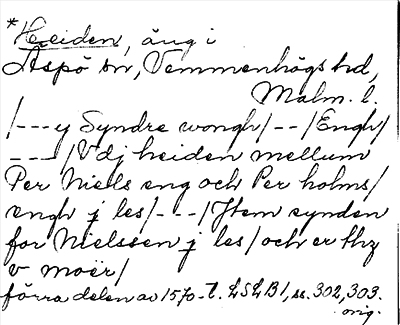 *Heiden, äng i
Aspö sn, Vemmenhögs hd,
Malm. l.
/---y Syndre wongh/--/Engh/
---/Vdj heiden mellum
Per Niels eng och Per holms/
engh j les/---/Jtem synden
for Nielssen j les/och er thz
v moër/
förra delen av 1570-t. LSLB1, ss. 302, 303.
orig.